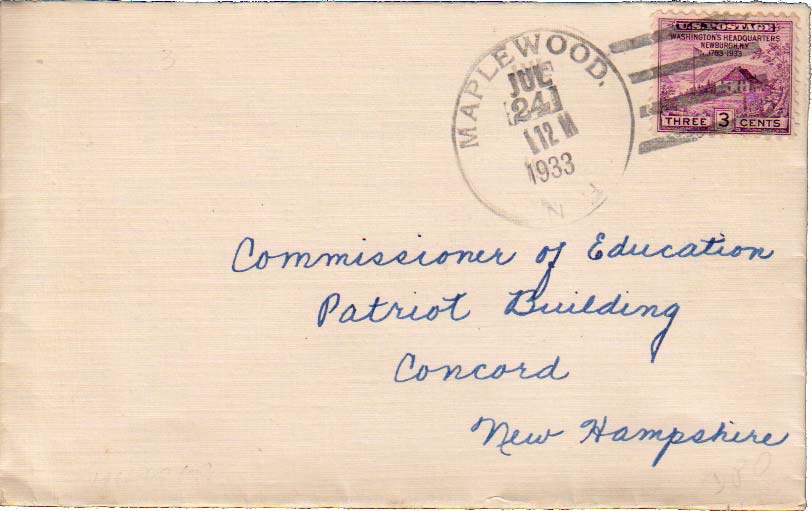 U.S. POSTAGE
WASHINGTON'S HEADQUARTERS
NEWBURGH, N.Y.
1783-1933
THREE 3 CENTS
MAPLEWOOD,
JUL
24
12 M
1933
N
Commissioner of Education
Patriot Building
Concord
New Hampshire